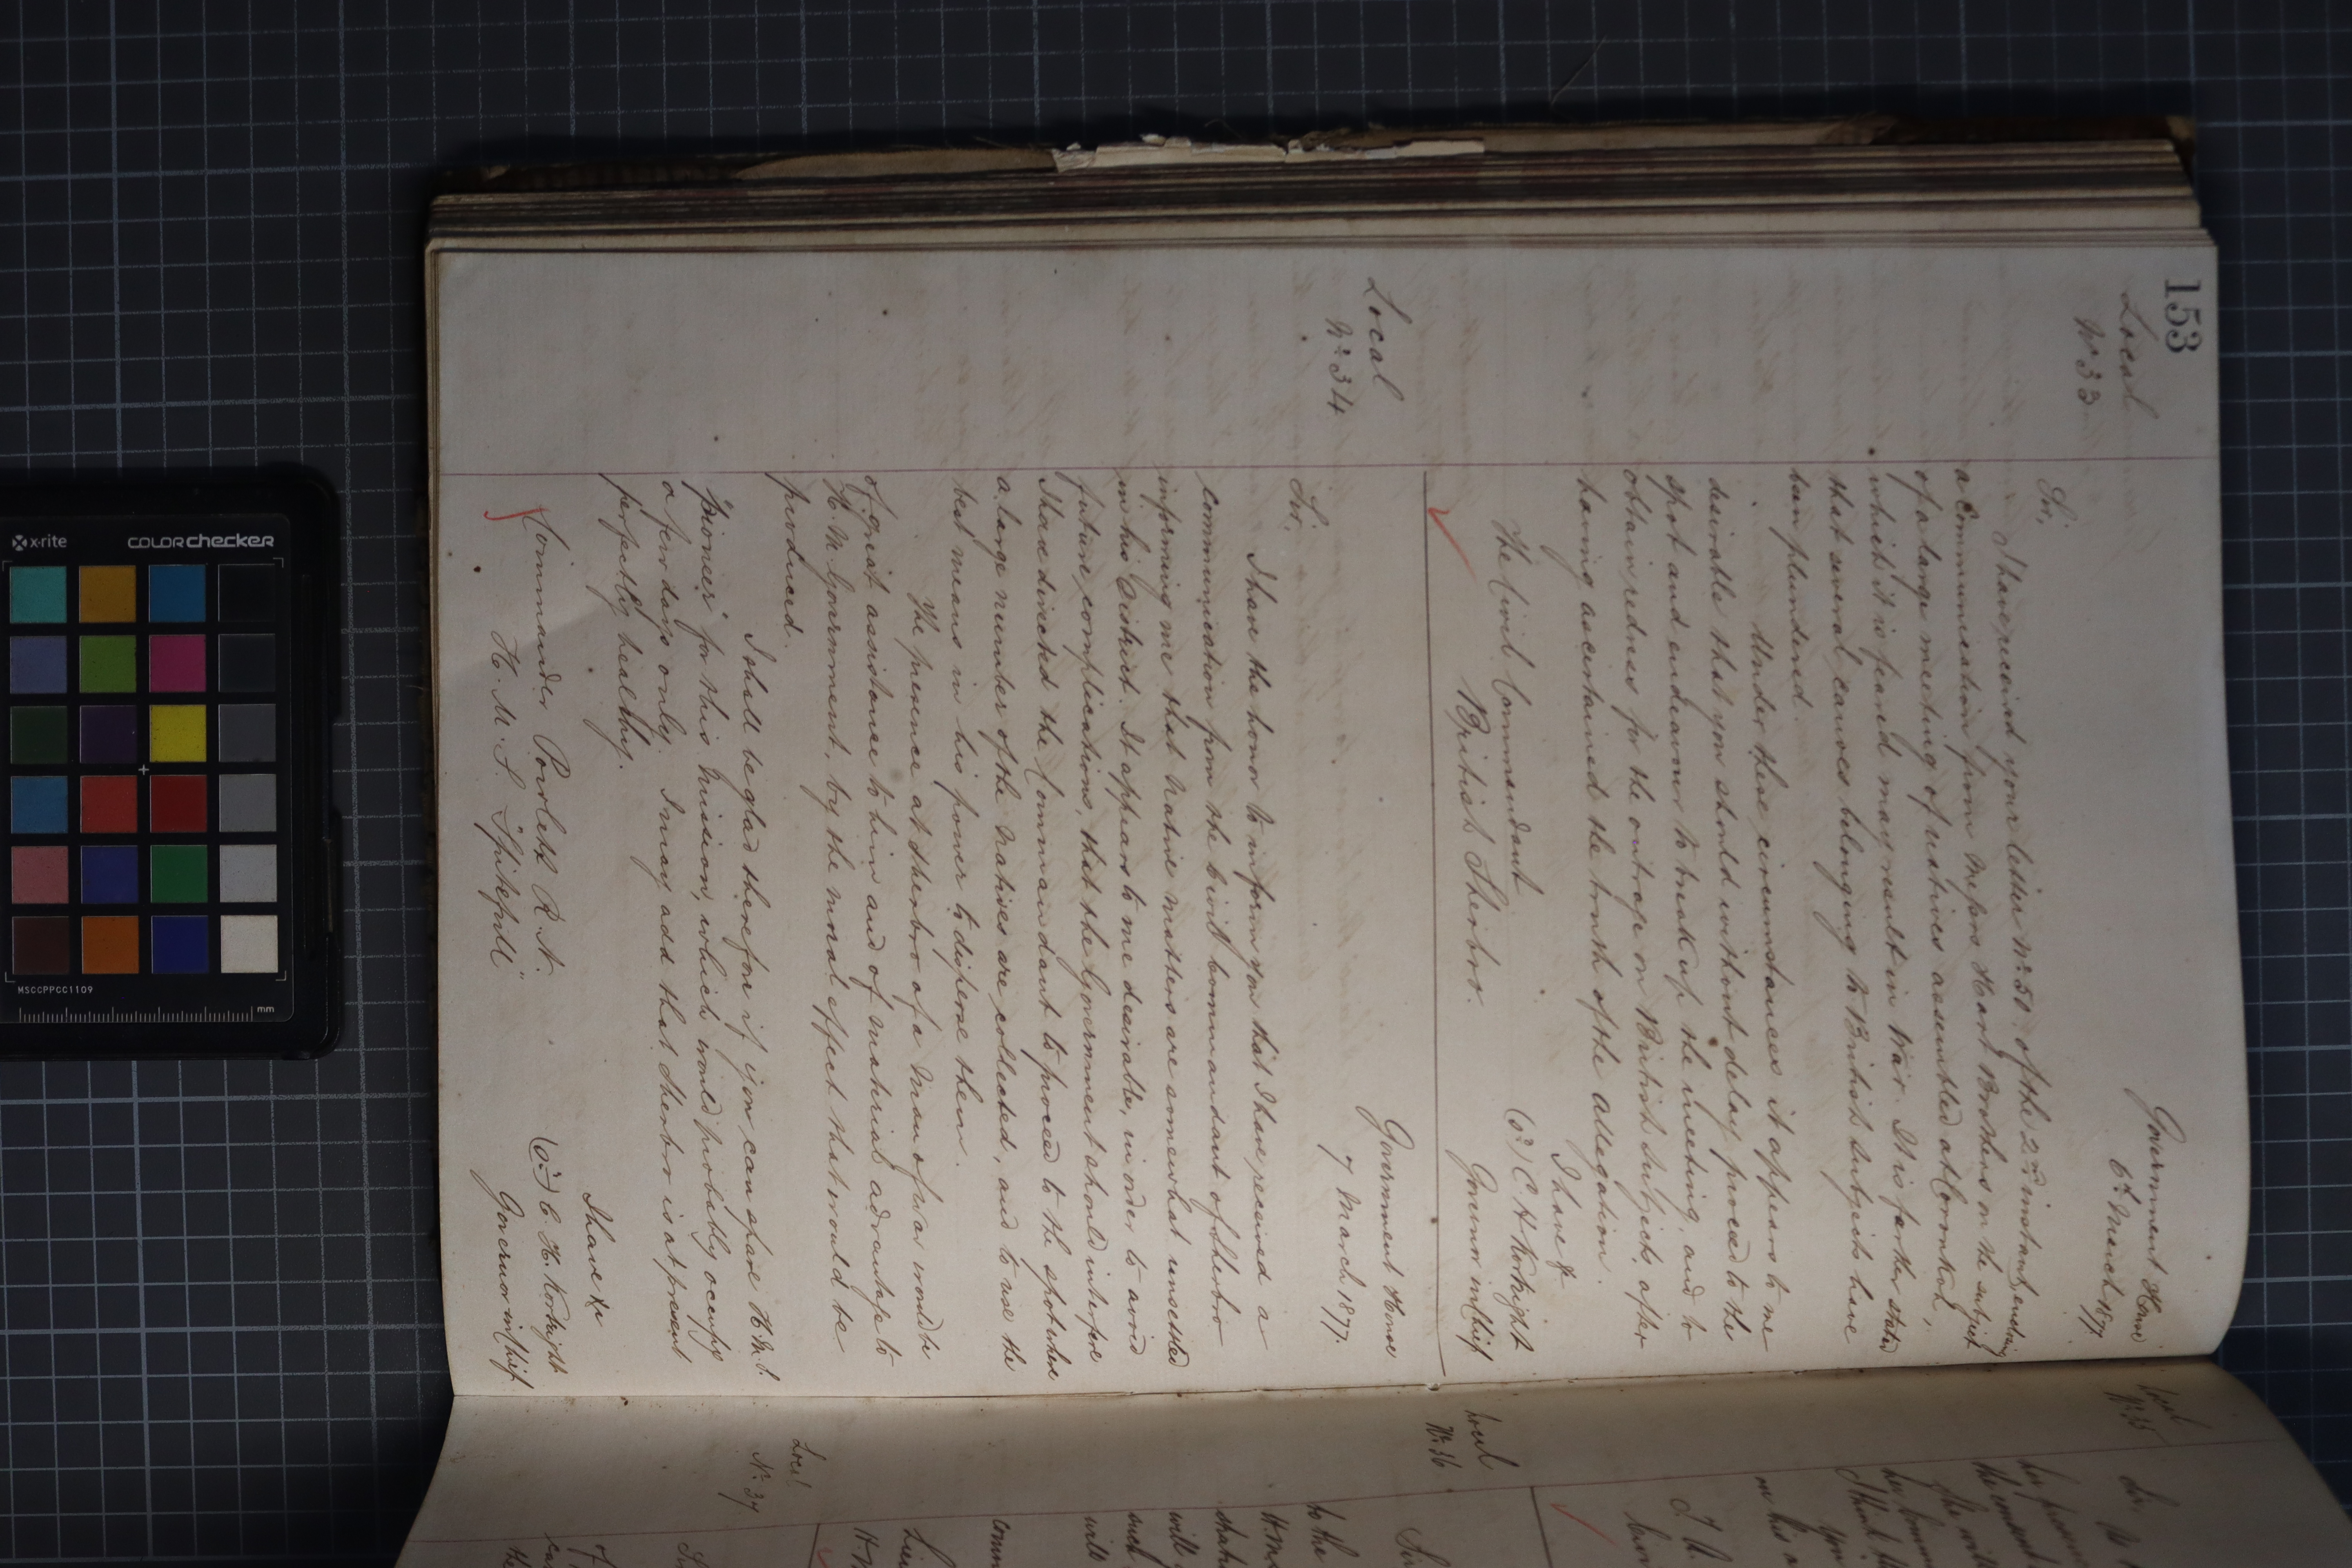 153
Local
No. 33
Government House
6th March 1877.
Sir,
I have received your letter No. 50 of the 2nd instant, enclosing
a Communication from Messrs Hart Brothers on the subject
of a large meeting of natives assembled at
which it is feared may result in War. It is further stated
that several canoes belonging to British subjects have
been plundered.
Under these circumstances it appears to me
desirable that you should without delay proceed to the
spot and endeavour to break up the meeting, and to
obtain redress for the outrage on British subjects, after
having ascertained the truth of the allegation.
I have &
C. H. Kortright
Governor in Chief
The Civil Commandant
British Sherbro.
Local
No. 34
Government House
7 March 1877.
Sir,
I have the honor to inform you that I have received a
communication from the Civil Commandant of Sherbro
informing me that Native matters are somewhat unsettled
in his District. It appears to me desirable, in order to avoid
future complications, that the Government should interfere
I have directed the Commandant to proceed to the spot where
a large number of the Natives are collected, and to use the
best means in his power to disperse them.
The presence at Sherbro of a Man of War would be
of great assistance to him and of material advantage to
H. M. Government, by the moral effect that would be
produced.
I shall be glad therefore if you can spare H.M.S.
"Pioneer" for this Mission, which would probably occupy
a few days only. I may add that Sherbro is at present
perfectly healthy.
I have &c
C. H. Kortright
Governor in Chief.
Commander R.N.
H. M. S. "Spiteful"
Local
No. 35
Sir
Local
No. 36
Sir
to the
will
such
will
Local
No. 37
of
the